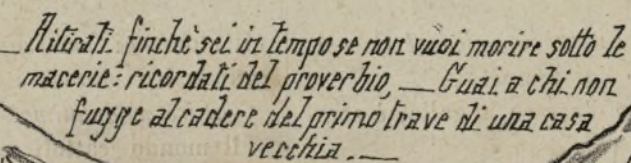 — Ritirati finchè sei in tempo se non vuoi morire sotto le
macerie: ricordati del proverbio, — Guai a chi non
fugge al cadere del primo trave di una casa
vecchia. —